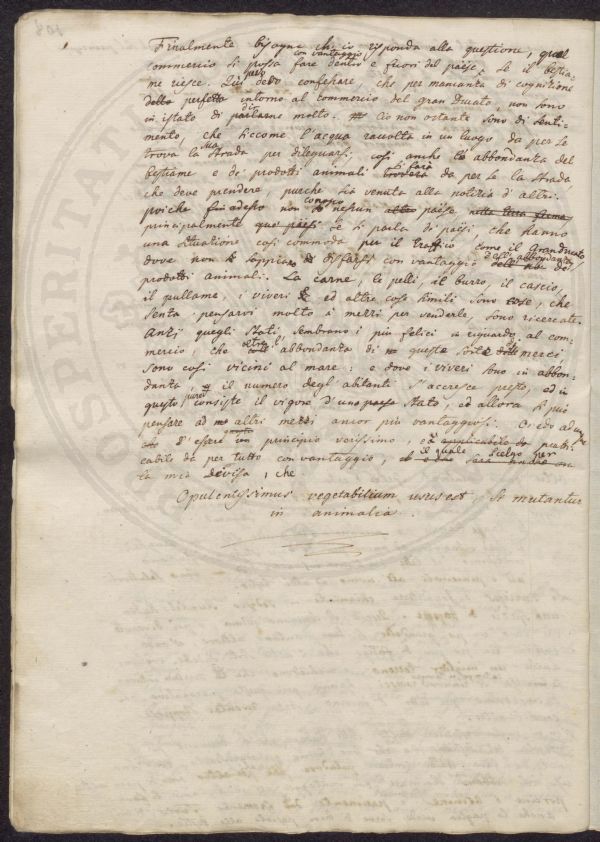 Finalmente bisogna che io risponda alla questione, qual
con vantaggio
commercio si possa fare dentro e fuori del paese, se il bestia-
me riesce. Quì però devo confessare, che per mancanza di cognizione
intorno al commercio del gran Ducato, non sono
in istato di parlarne molto. Ciò non ostante sono di senti-
mento, che siccome l'acqua raccolta in un luogo da per se
trova la sua strada per dileguarsi, così anche abbondanza del
bestiame e de' prodotti animali si farà da per se la strada
che deve prendere, purche sia venuta alla notizia d'altri.
poiche fin adesso non conosco nessun paese
principalmente se si parla di paesi, che hanno
una situazione così commoda per il traffico come il Granducato
dove non si sappia disfarsi con vantaggio dell'abbondanza de
prodotti animali. La carne, le pelli, il burro, il cascio,
il pullame, i viveri ed altre cose simili sono cose, che
senza pensarvi molto a mezzi per venderle, sono ricercate.
Anzi quegli Stati, sembrano i più felici in riguardo al com-
mercio, che oltre l'abbondanza di queste sorte merci
sono così vicini al mare: e dove i viveri sono in abbon-
danza, il numero degl'abitanti s'accresce presto, ed in
questo pure consiste il vigore d'uno Stato, ed allora si può
pensare ad altri mezzi ancor più vantaggiosi. Credo adun-
que d'essere questo un principio verissimo, e prati-
cabile da per tutto con vantaggio, il quale scelgo per
la mia Devisa, che
Opulentissimus vegetabilium usus est, si mutantur
in animalia.